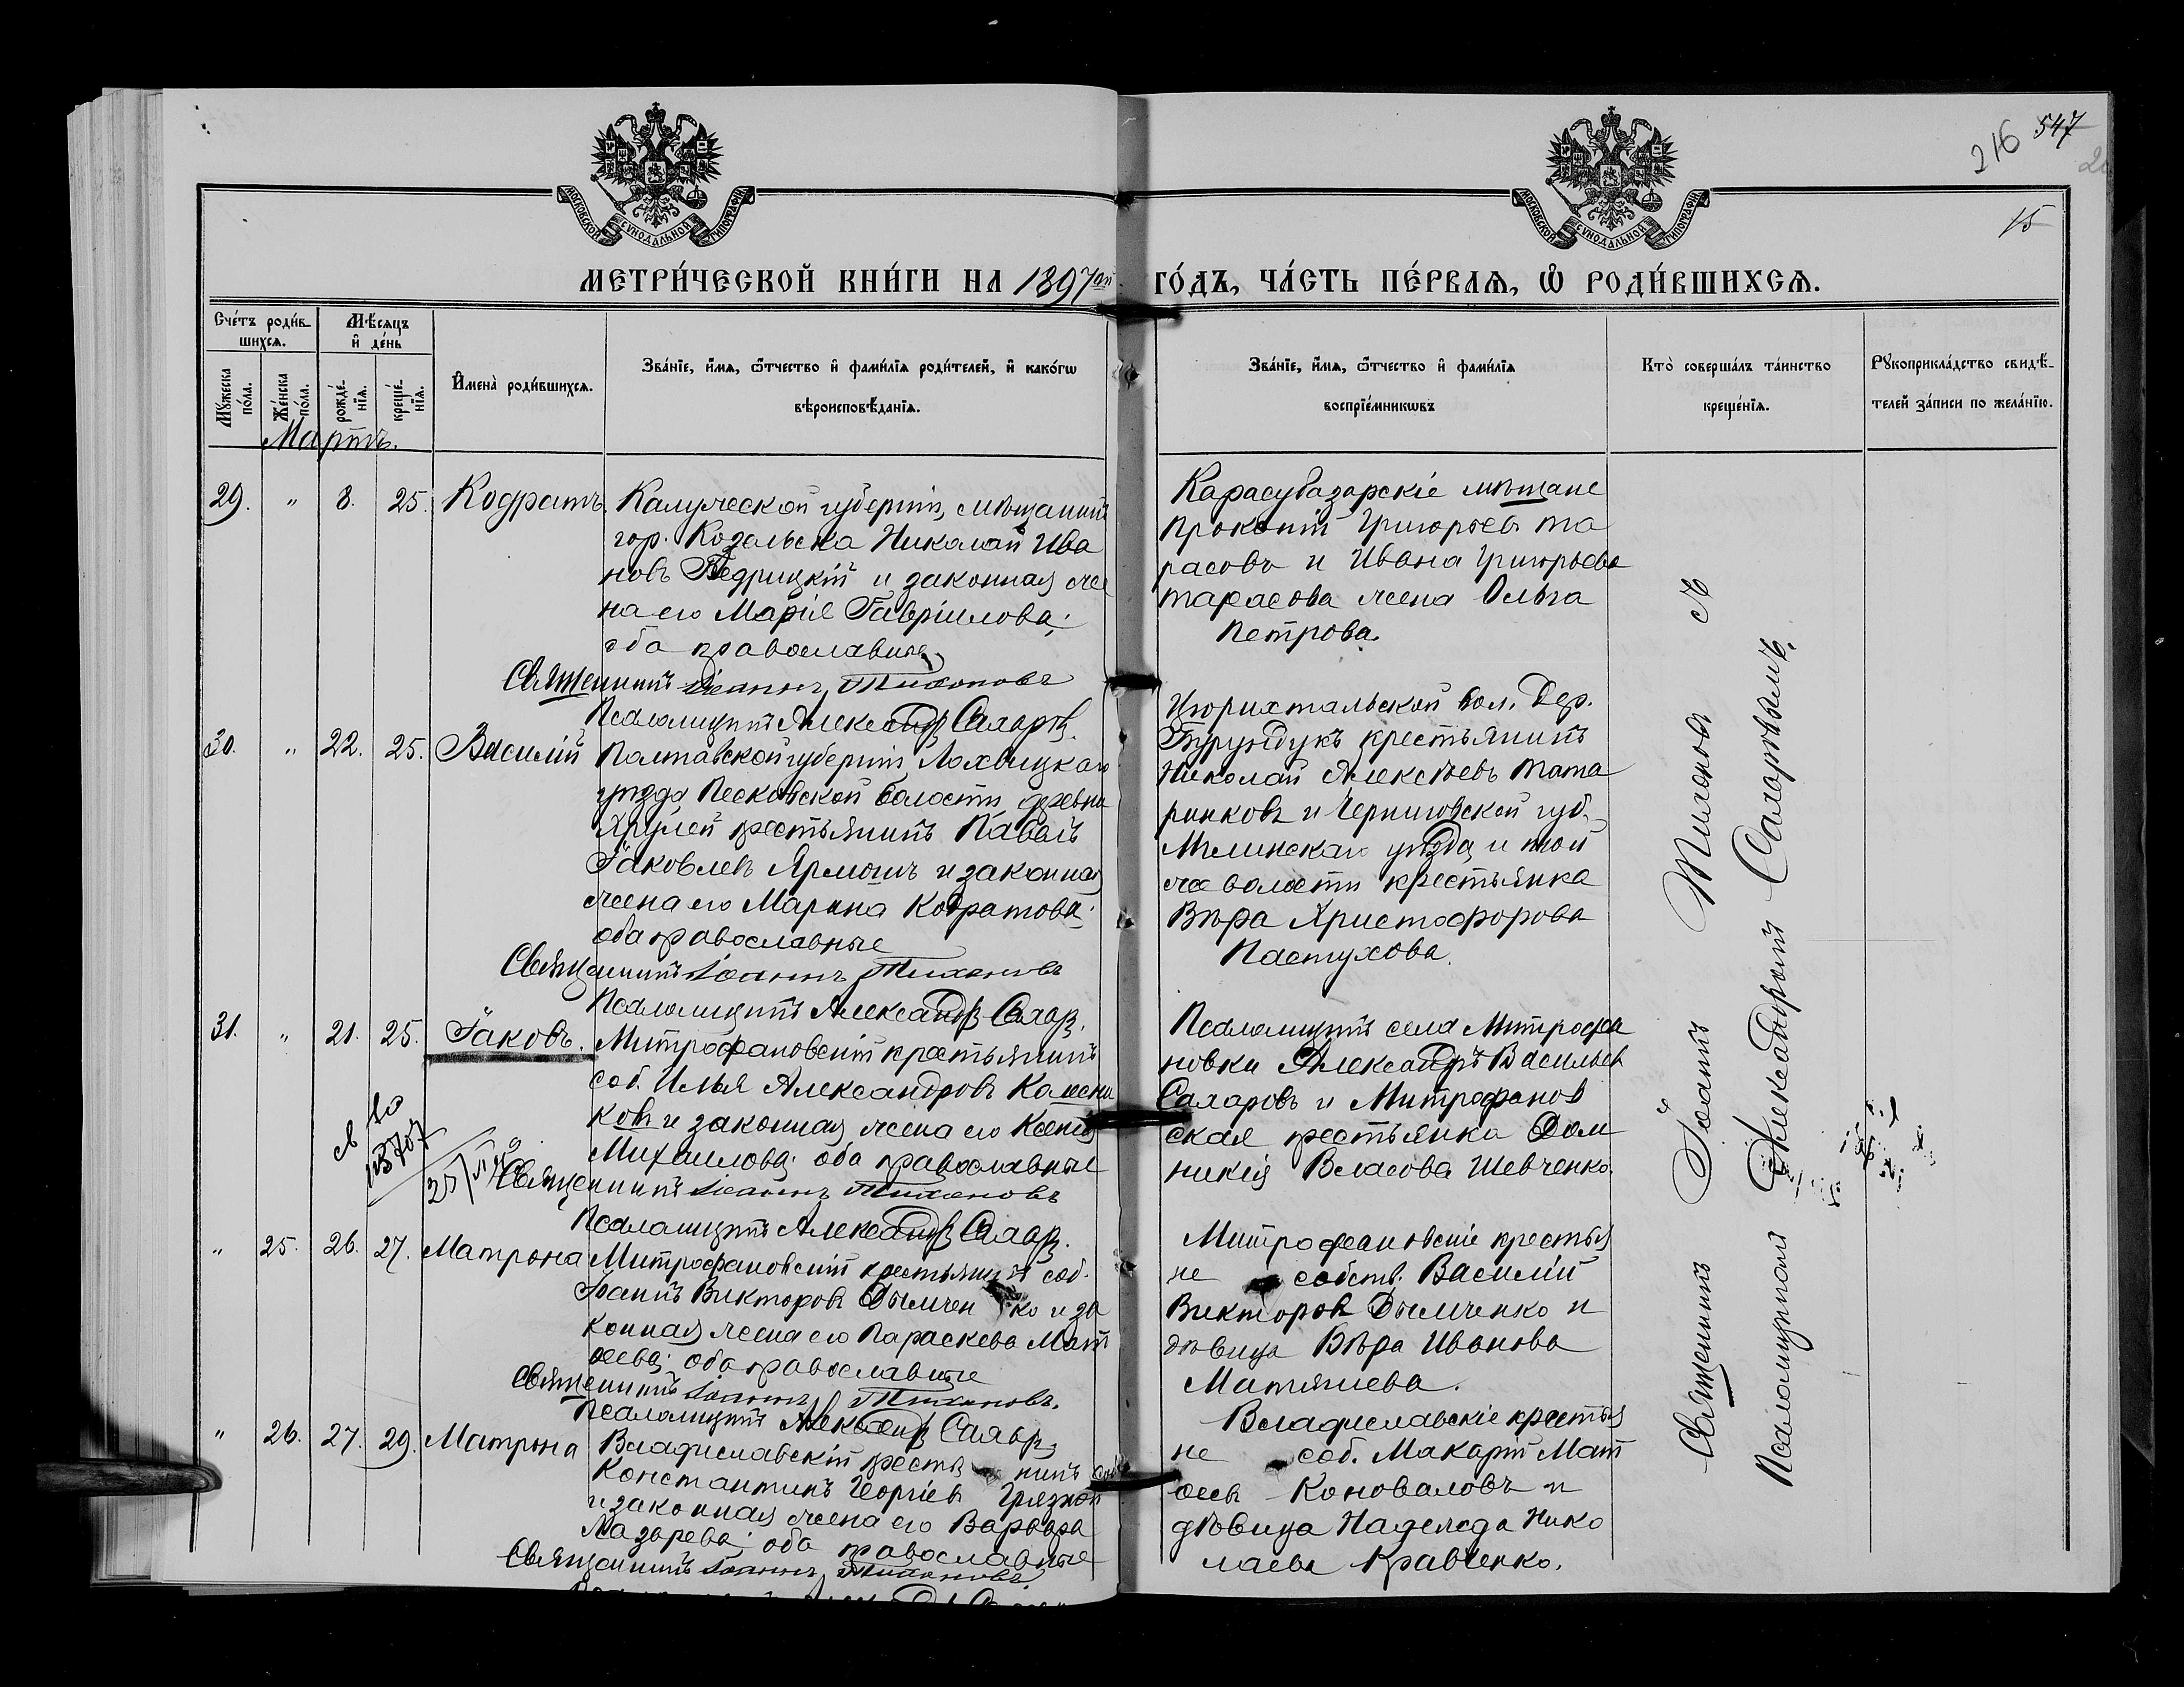 216 547
15
МОСКОВСКОЙ СУНОДАЛЬНОЙ ТИПОГРАФІИ
МОСКОВСКОЙ СУНОДАЛЬНОЙ ТИПОГРАФІИ
МЕТРИ́ЧЕСКОЙ КНИ́ГИ НА 1897ой ГО́ДЪ, ЧА́СТЬ ПЕ́РВАѦ, Ѿ РОДИ́ВШИХСѦ.
Сче́тъ роди́в-
шихсѧ.
Мѣ́сѧцъ
и҆ де́нь
Мꙋ́жеска
по́ла.
Же́нска
по́ла.
рожде́-
нїѧ.
креще́-
нїѧ.
И҆мена̀ роди́вшихсѧ.
Зва́нїе, и҆́мѧ, ѻ҆́тчество и҆ фами́лїѧ роди́телей, и҆ како́гѡ
вѣроисповѣ́данїѧ.
Зва́нїе, и҆́мѧ, ѻ҆́тчество и҆ фами́лїѧ
воспрїе́мникѡвъ
Кто̀ соверша́лъ та́инство
креще́нїѧ.
Рꙋкоприкла́дство свидѣ́-
телей за́писи по жела́нїю.
Мартъ.
29. " 8. 25. Кодратъ. Калужеской губерніи, мѣщанинъ
гор. Козельска Николай Ива
новъ Ведрицкій и законная же
на его Марія Гавріилова;
оба православные
Священникъ Іоаннъ Тихоновъ
Псаломщикъ Александръ Сахаровъ.
Карасубазарскіе мѣщане
Прокопій Григорьевъ Та
расовъ и Ивана Григорьева
Тарасова жена Ольга
Петрова.
30. " 22. 25. Василій Полтавской губерніи Лохвицкаго
уѣзда Песковской волости деревни
Хрулей крестьянинъ Павелъ
Іаковлевъ Ярмошъ и законная
жена его Марина Кодратова;
оба православные
Священникъ Іоаннъ Тихоновъ
Псаломщикъ Александръ Сахар.
Цюрихтальской вол. дер.
Бурундукъ крестьянинъ
Николай Алексѣевъ Тата
ринковъ и Черниговской губ.
Мглинскаго уѣзда и той
же волости крестьянка
Вѣра Христофорова
Пастухова.
31. " 21. 25. Іаковъ. Митрофановскій крестьянинъ
соб. Илья Александровъ Колесни
ковъ и законная жена его Ксенія
Михаилова; оба православные
Священникъ Іоаннъ Тихоновъ
Псаломщикъ Александръ Сахар.
Псаломщикъ села Митрофа
новки Александръ Васильев
Сахаровъ и Митрофанов
ская крестьянка Дом
никія Власова Шевченко.
" 25. 26. 27. Матрона Митрофановскій крестьянинъ соб.
Іоаннъ Викторовъ Дымченко и за
конная жена его Параскева Мат
ѳеева; оба православные
Священникъ Іоаннъ Тихоновъ.
Псаломщикъ Александръ Сахар.
Митрофановскіе крестья
не собств. Василій
Викторовъ Дымченко и
дѣвица Вѣра Иванова
Матяшева.
" 26. 27. 29. Матрона Владиславскій крестьянинъ соб.
Константинъ Георгіевъ Грязнов
и законная жена его Варвара
Лазарева; оба православные
Священникъ Іоаннъ Тихоновъ
Владиславскіе крестья
не соб. Макарій Мат
ѳеевъ Коноваловъ и
дѣвица Надежда Нико
лаева Кравченко.
Священникъ Іоаннъ Тихоновъ съ
Псаломщикомъ Александромъ Сахаровымъ.